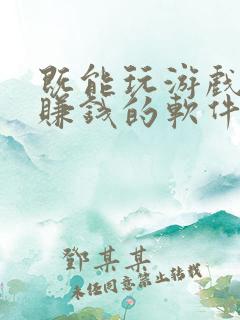 既能玩游戏
賺錢的軟件
鄧某某
未經同意禁止轉載